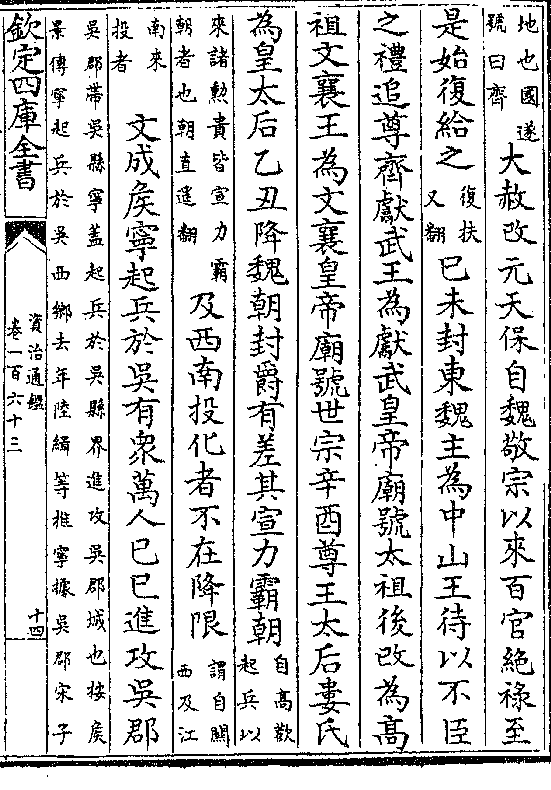 地也國遂
號曰齊
大赦改元天保自魏敬宗以來百官絶祿至
是始復給之
復扶
又翻
己未封東魏主為中山王待以不臣
之禮追尊齊獻武王為獻武皇帝廟號太祖後改為高
祖文襄王為文襄皇帝廟號世宗辛酉尊王太后婁氏
為皇太后乙丑降魏朝封爵有差其宣力霸朝
自高歡
起兵以
來諸勲貴皆宣力霸
朝者也朝直遥翻
及西南投化者不在降限
謂自關
西及江
南來
投者
文成侯寧起兵於吳有衆萬人己巳進攻吳郡
吳郡帶吳縣寧盖起兵於吳縣界進攻吳郡城也按侯
景傳寧起兵於吳西鄉去年陸緝等推寧據吳郡宋子
欽定四庫全書
資治通鑑
卷一百六十三
十四